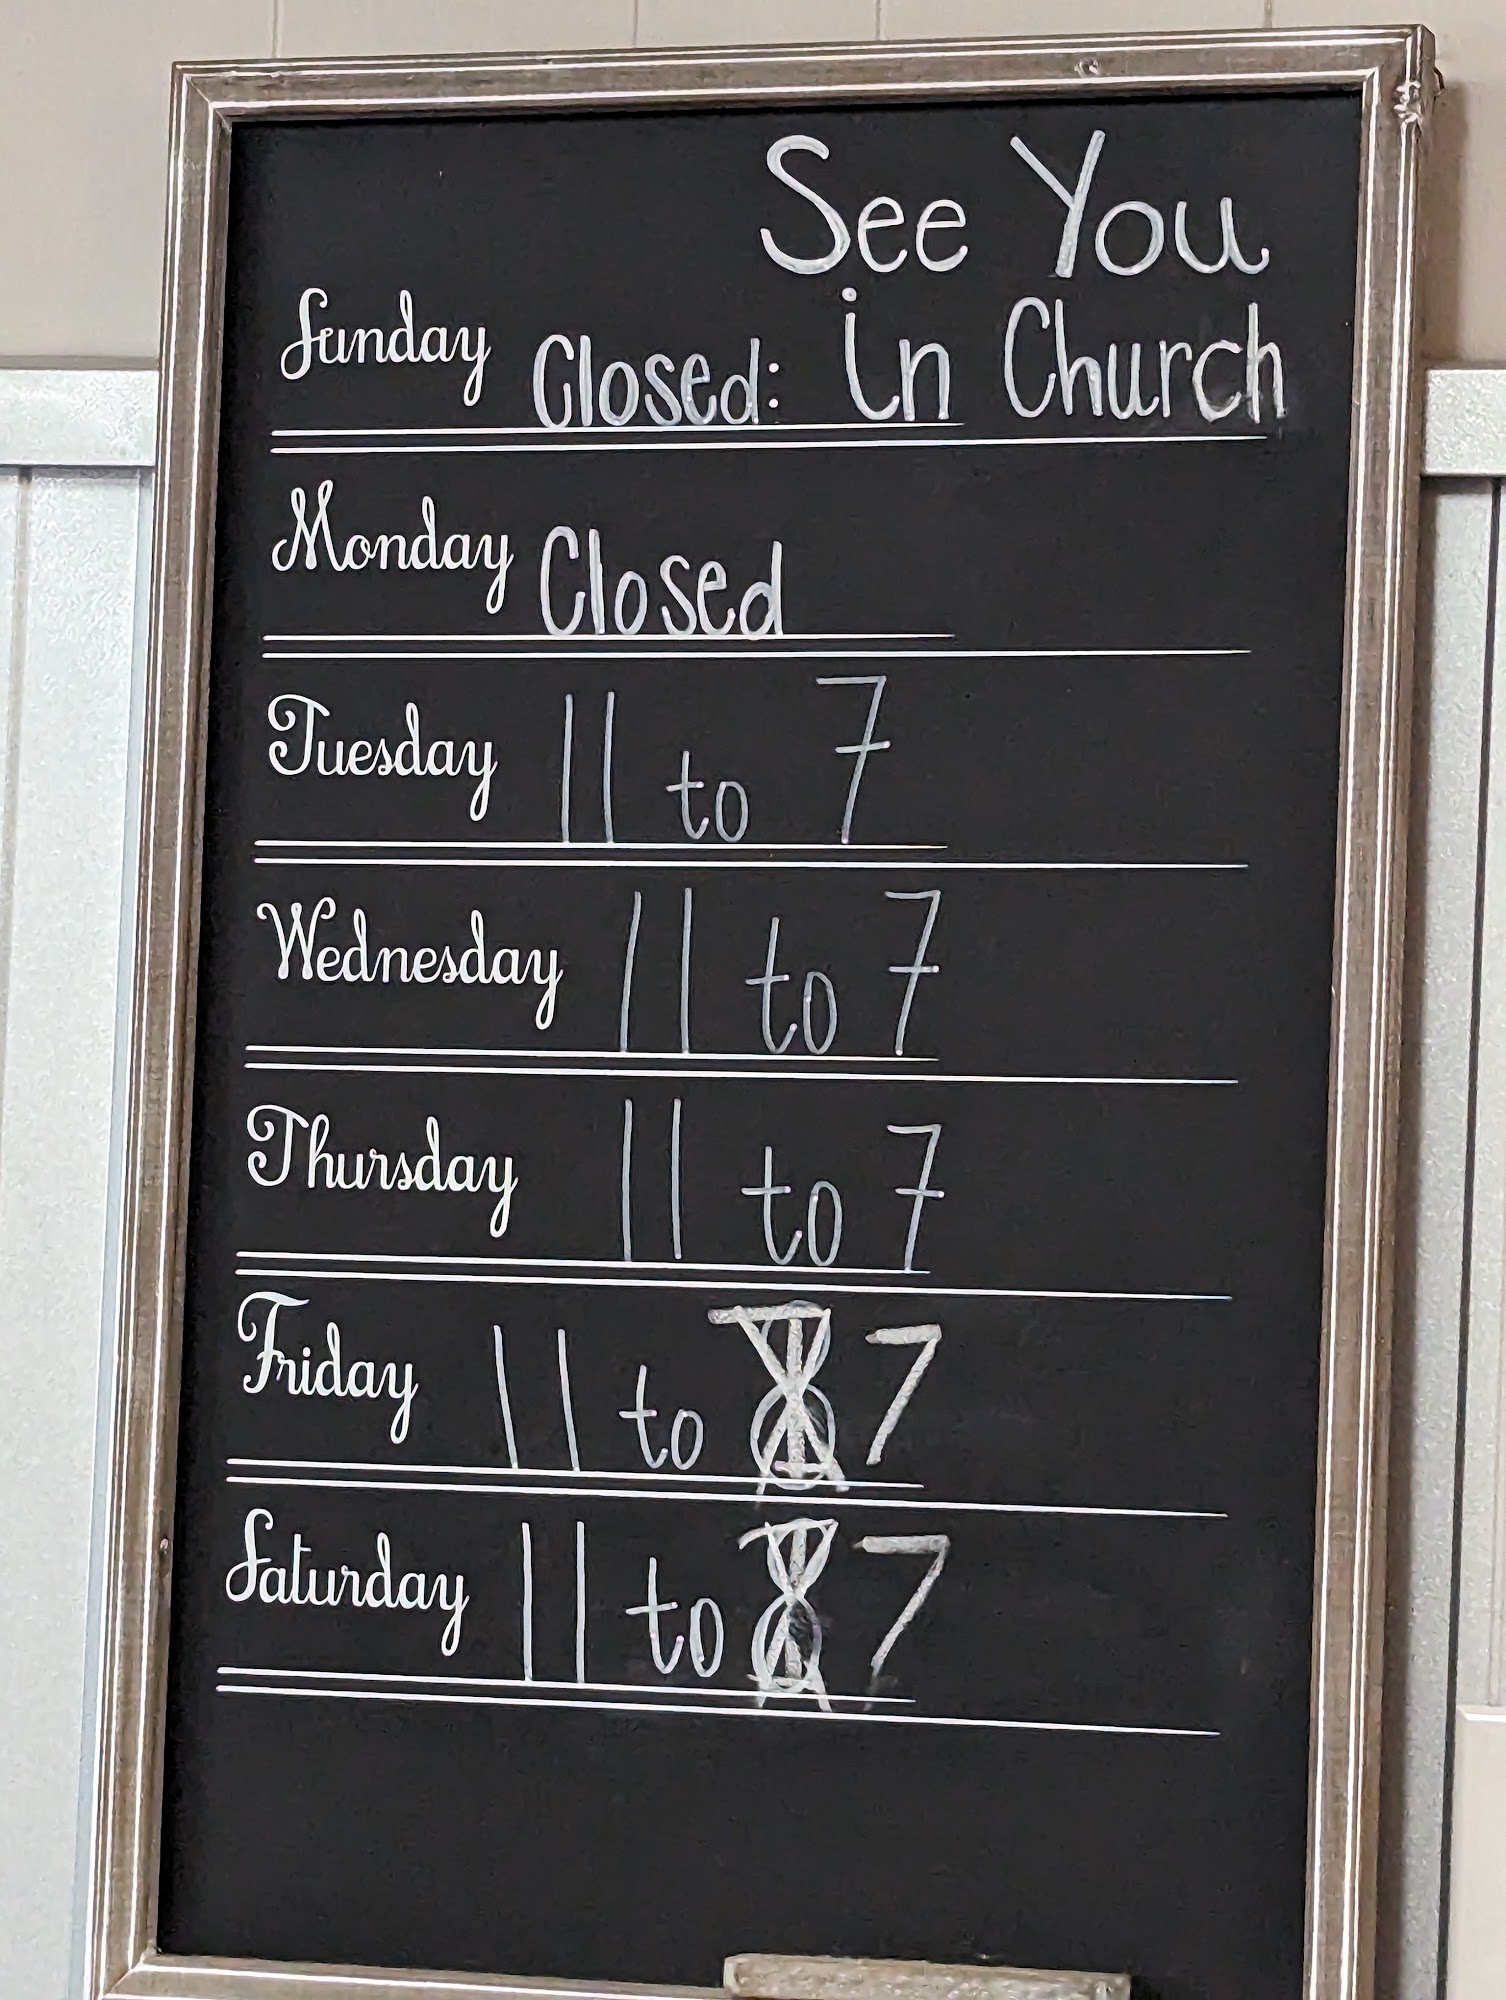 See You
Sunday Closed: in Church
Monday Closed
Tuesday 11 to 7
Wednesday 11 to 7
Thursday 11 to 7
Friday 11 to 7
Saturday 11 to 7